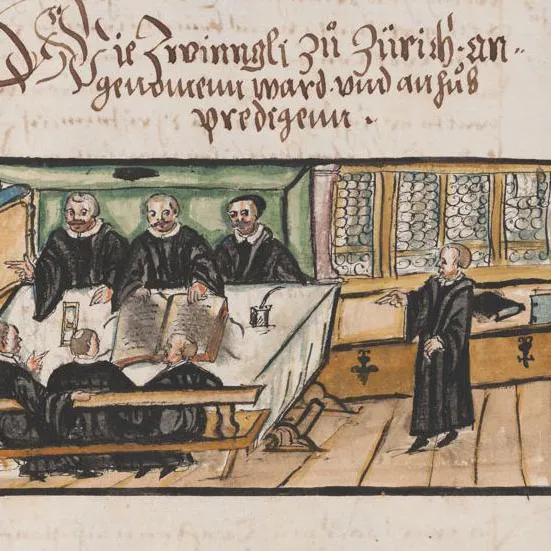 Wie Zwinngli zů Zürich an-
genomenn ward vnd anhůb
predigenn.